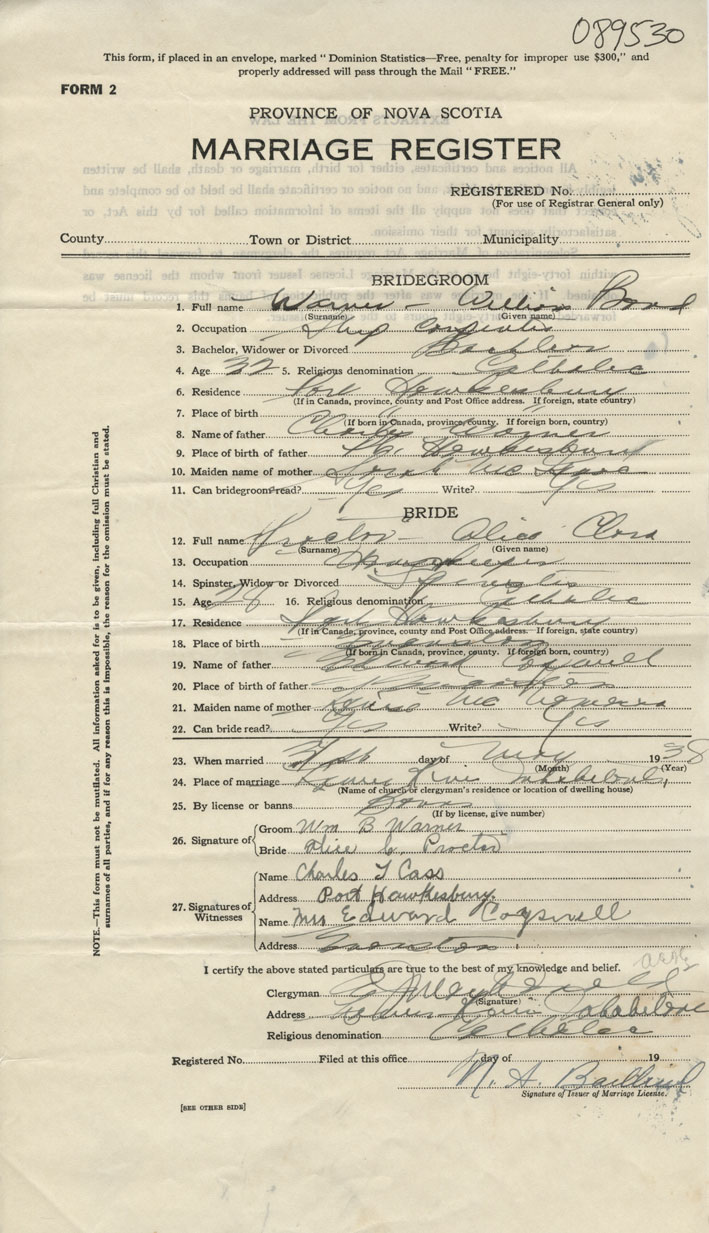 089530
This form, if placed in an envelope, marked " Dominion Statistics—Free, penalty for improper use $300," and
properly addressed will pass through the Mail " FREE."
FORM 2
PROVINCE OF NOVA SCOTIA
MARRIAGE REGISTER
REGISTERED No.
(For use of Registrar General only)
County Town or District Municipality
BRIDEGROOM
1. Full name Warner - William Bond
(Surname) (Given name)
2. Occupation Ship Carpenter
3. Bachelor, Widower or Divorced Bachelor
4. Age 32 5. Religious denomination Catholic
6. Residence Port Hawkesbury
(If in Canada, province, county and Post Office address. If foreign, state country)
7. Place of birth " "
(If born in Canada, province, county. If foreign born, country)
8. Name of father Charles Warner
9. Place of birth of father Pt. Hawkesbury
10. Maiden name of mother Sarah Mc
11. Can bridegroom read? Yes Write? Yes
BRIDE
12. Full name Proctor - Alice Clara
(Surname) (Given name)
13. Occupation Housekeeper
14. Spinster, Widow or Divorced Spinster
15. Age 28 16. Religious denomination Catholic
17. Residence Port Hawkesbury
(If in Canada, province, county and Post Office address. If foreign, state country)
18. Place of birth
(If born in Canada, province, county. If foreign born, country)
19. Name of father Edward Cogswell
20. Place of father
21. Maiden name of mother Mc
22. Can bride read? Yes Write? Yes
23. When married day of May 1938
(Month) (Year)
24. Place of marriage Lower River Inhabitants
(Name of church or clergyman's residence or location of dwelling house)
25. By license or banns Banns
(If by license, give number)
26. Signature of Groom Wm B Warner
Bride Alice C. Proctor
27. Signatures of Witnesses Name Charles T Cass
Address Port Hawkesbury.
Name Mrs Edward Cogswell
Address Evanston
I certify the above stated particulars are true to the best of my knowledge and belief.
Clergyman
(Signature)
Address Lower River Inhabitants
Religious denomination Catholic
Registered No. Filed at this office day of 19
Signature of Issuer of Marriage License.
[SEE OTHER SIDE]
NOTE.—This form must not be mutilated. All information asked for is to be given, including full Christian and
surnames of all parties, and if for any reason this is impossible, the reason for the omission must be stated.